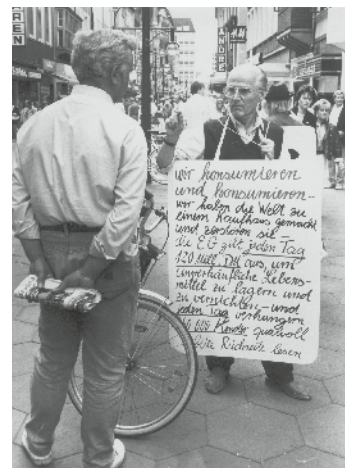 ANDRE
wir konsumieren
und konsumieren –
wir haben die Welt zu
einem Kaufhaus gemacht
und zerstören sie –
die EG gibt jeden Tag
120 Mill. DM aus, um
unverkäufliche Lebens-
mittel zu lagern und
zu vernichten – und
jeden Tag verhungern
Kinder qualvoll
bitte Rückseite lesen